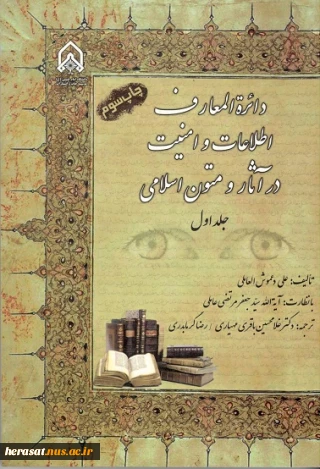 چاپ سوم
دائرة المعارف
اطلاعات و امنیت
در آثار و متون اسلامی
جلد اول
تألیف: علی دعموش العاملی
با نظارت: آیة الله سید جعفر مرتضی عاملی
ترجمه: دکتر غلامحسین باقری مهیاری / رضا گرمابدری
herasat.nus.ac.ir